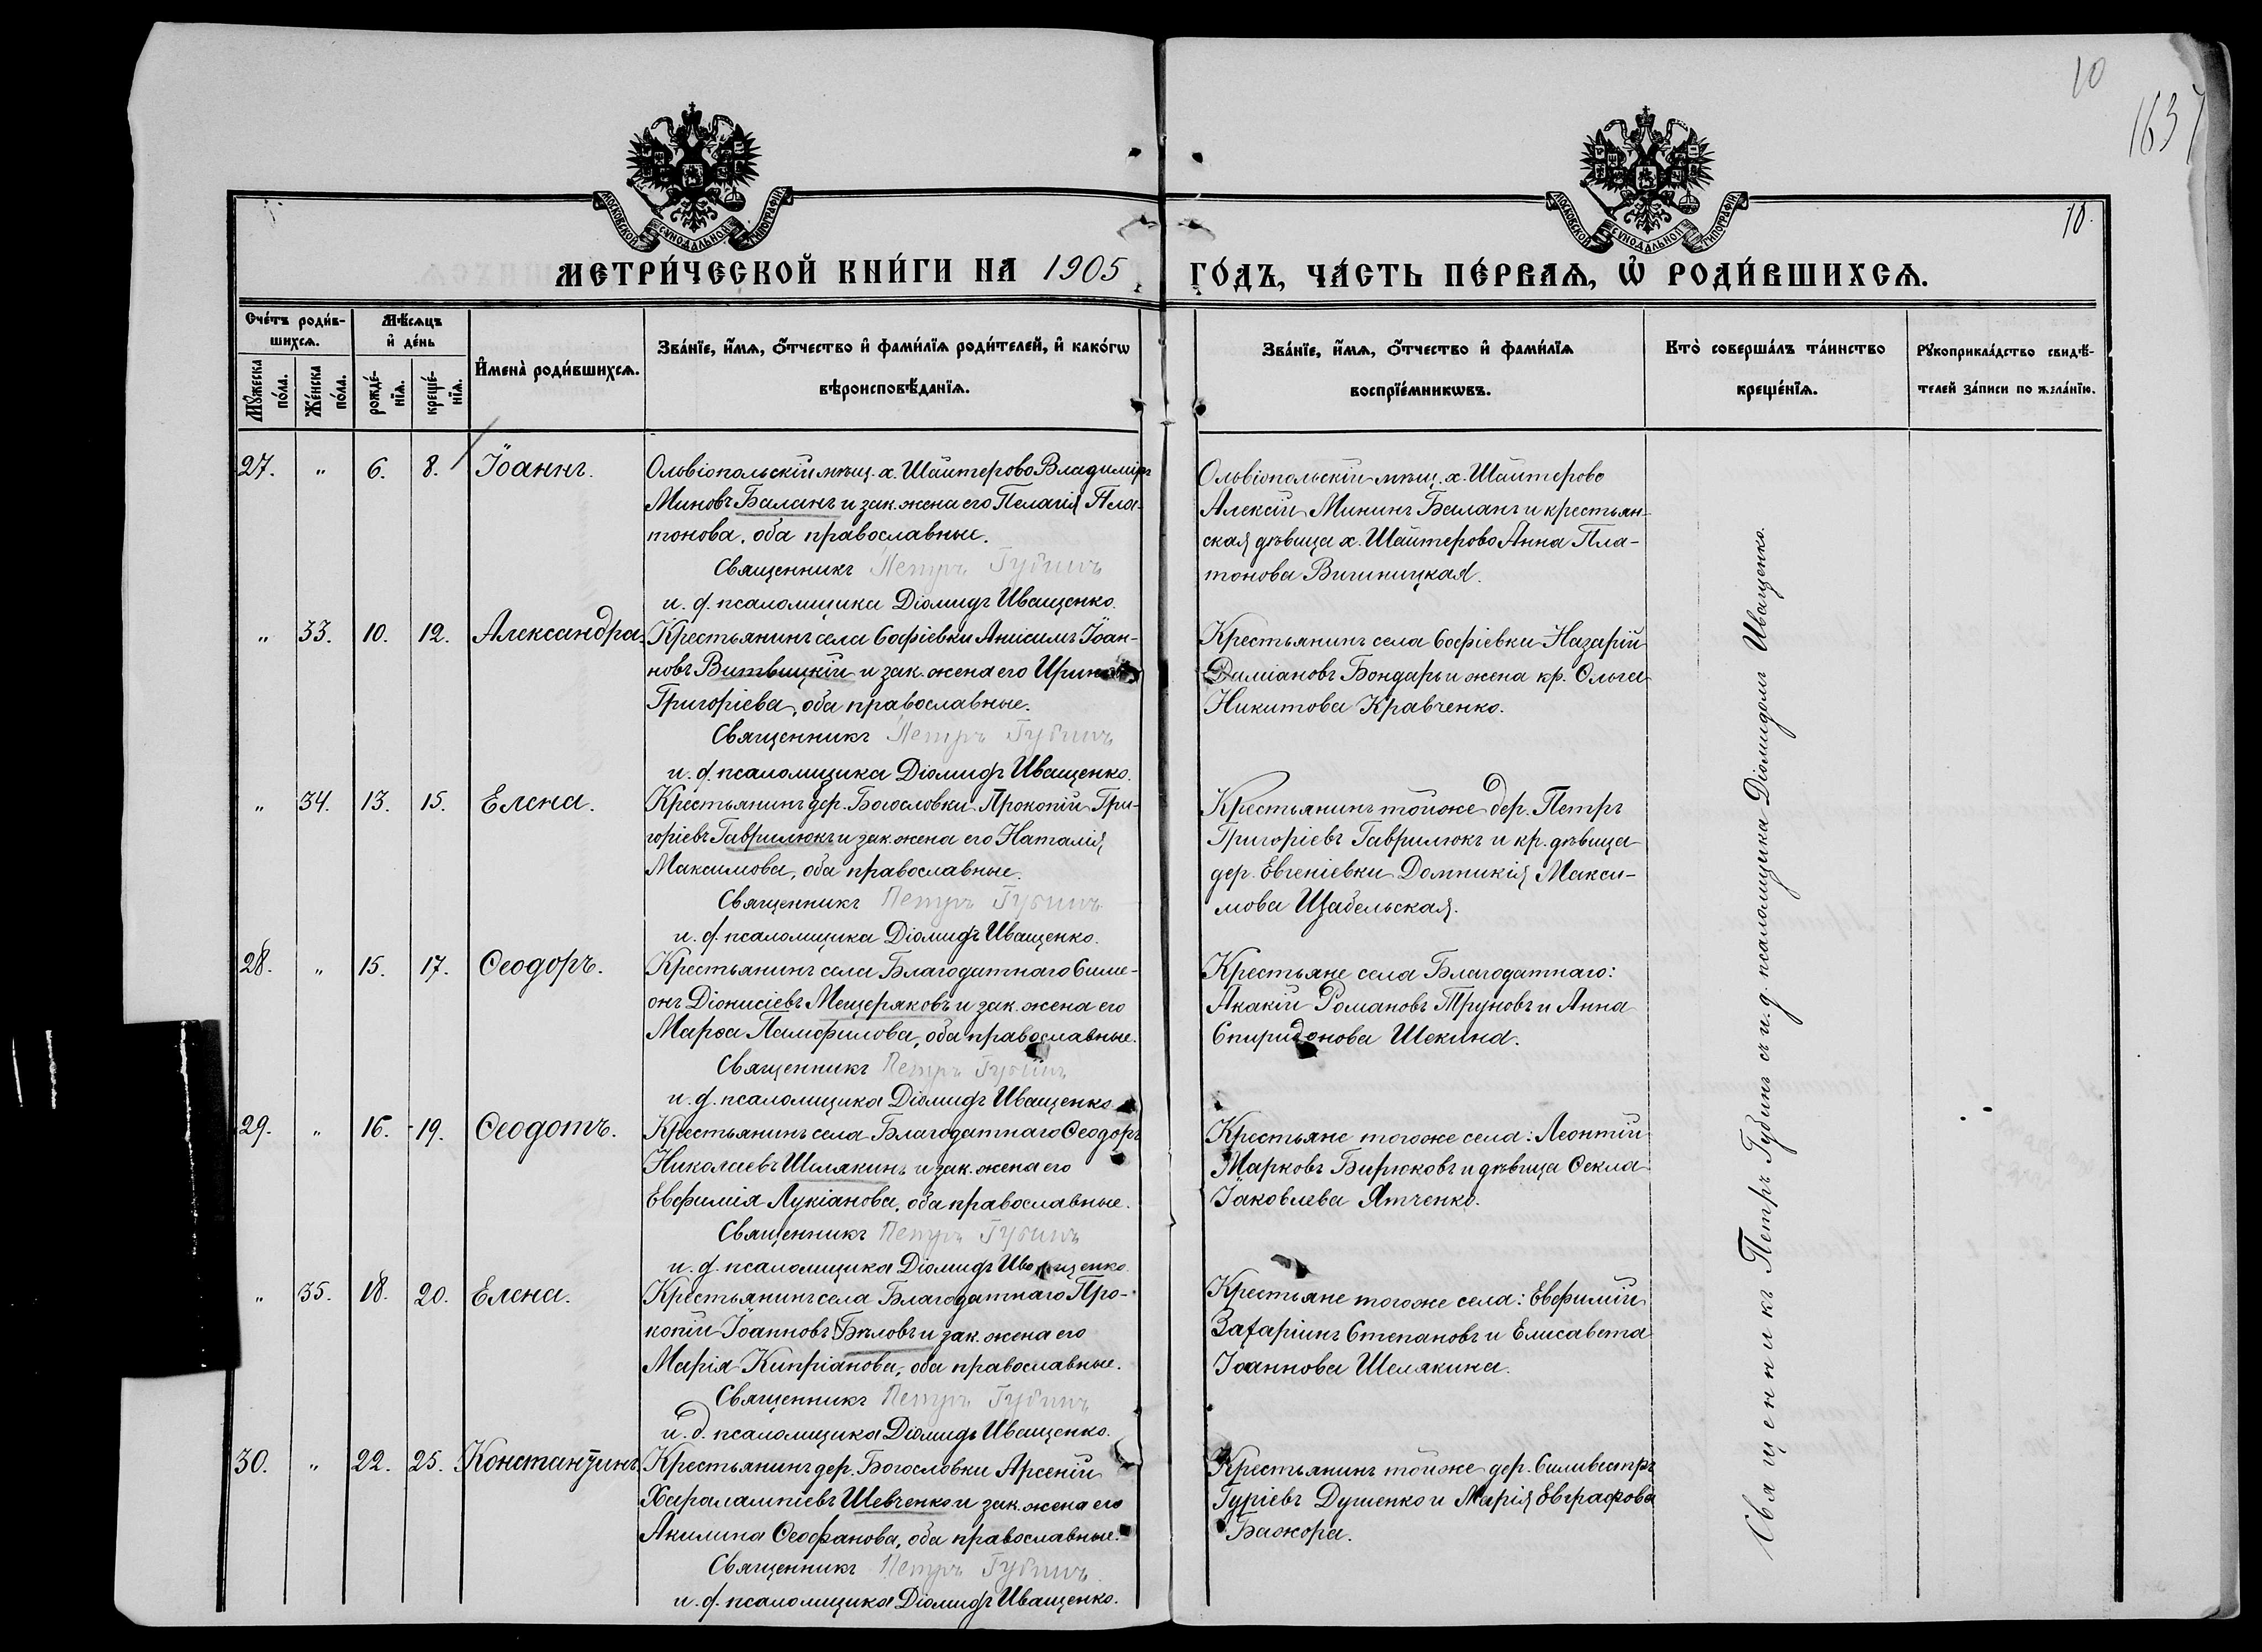 10
1637
МОСКОВСКОЙ СУНОДАЛЬНОЙ ТИПОГРАФІИ
МОСКОВСКОЙ СУНОДАЛЬНОЙ ТИПОГРАФІИ
10.
МЕТРИ́ЧЕСКОЙ КНИ́ГИ НА 1905 ГО́ДЪ, ЧА́СТЬ ПЕ́РВАѦ, Ѡ РОДИ́ВШИХСѦ.
Сче́тъ роди́в-
шихсѧ.
Мꙋ́жеска по́ла.
Же́нска по́ла.
Мѣ́сѧцъ
и҆ де́нь
рожде́-
нїѧ.
креще́-
нїѧ.
И҆мена̀ роди́вшихсѧ.
Зва́нїе, и҆́мѧ, ѻ҆́тчество и҆ фами́лїѧ роди́телей, и҆ како́гѡ
вѣроисповѣ́данїѧ.
Зва́нїе, и҆́мѧ, ѻ҆́тчество и҆ фами́лїѧ
воспрїе́мникѡвъ.
Кто̀ соверша́лъ та́инство
креще́нїѧ.
Рꙋкоприкла́дство свидѣ́-
телей за́писи по жела́нїю.
27. " 6. 8. Іоаннъ.
Ольвіопольскій мѣщ. х. Шайтерово Владиміръ
Миновъ Баланъ и зак. жена его Пелагія Пла-
тонова, оба православные.
Священникъ Петръ Губинъ
и. д. псаломщика Діомидъ Иващенко.
Ольвіопольскій мѣщ. х. Шайтерово
Алексій Мининъ Баланъ и крестьян-
ская дѣвица х. Шайтерово Анна Пла-
тонова Вишницкая.
" 33. 10. 12. Александра.
Крестьянинъ села Софіевки Анисимъ Іоан-
новъ Витвицкій и зак. жена его Ирина
Григоріева, оба православные.
Священникъ Петръ Губинъ
и. д. псаломщика Діомидъ Иващенко.
Крестьянинъ села Софіевки Назарій
Даміановъ Бондарь и жена кр. Ольга
Никитова Кравченко.
" 34. 13. 15. Елена.
Крестьянинъ дер. Богословки Прокопій Гри-
горіевъ Гаврилюкъ и зак. жена его Наталія
Максимова, оба православные.
Священникъ Петръ Губинъ
и. д. псаломщика Діомидъ Иващенко.
Крестьянинъ тойже дер. Петръ
Григоріевъ Гаврилюкъ и кр. дѣвица
дер. Евгеніевки Домникія Макси-
мова Щабельская.
28. " 15. 17. Ѳеодоръ.
Крестьянинъ села Благодатнаго Симе-
онъ Діонисіевъ Мещеряковъ и зак. жена его
Марѳа Памфилова, оба православные.
Священникъ Петръ Губинъ
и. д. псаломщика Діомидъ Иващенко
Крестьяне села Благодатнаго:
Акакій Романовъ Труновъ и Анна
Спиридонова Шекина.
29. " 16. 19. Ѳеодотъ.
Крестьянинъ села Благодатнаго Ѳеодоръ
Николаевъ Шелякинъ и зак. жена его
Евфимія Лукіанова, оба православные.
Священникъ Петръ Губинъ
и. д. псаломщика Діомидъ Иващенко
Крестьяне тогоже села: Леонтій
Марковъ Бирюковъ и дѣвица Ѳекла
Іаковлева Ятченко.
" 35. 18. 20. Елена.
Крестьянинъ села Благодатнаго Про-
копій Іоанновъ Бѣловъ и зак. жена его
Марія Кипріанова, оба православные.
Священникъ Петръ Губинъ
и. д. псаломщика Діомидъ Иващенко.
Крестьяне тогоже села: Евфимій
Захаріинъ Степановъ и Елисавета
Іоаннова Шелякина.
30. " 22. 25. Константинъ
Крестьянинъ дер. Богословки Арсеній
Харалампіевъ Шевченко и зак. жена его
Акилина Ѳеофанова, оба православные.
Священникъ Петръ Губинъ
и. д. псаломщика Діомидъ Иващенко.
Крестьянинъ тойже дер. Силивестръ
Гуріевъ Душенко и Марія Евграфова
Бажора.
Священникъ Петръ Губинъ съ и. д. псаломщика Діомидомъ Иващенко.